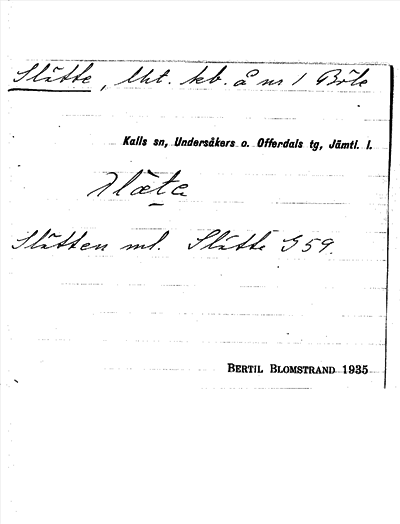 Slätte, lht. kb. å nr 1 Böle
Kalls sn, Undersåkers o. Offerdals tg, Jämtl. l.
Slätten ml. Slätte G59.
BERTIL BLOMSTRAND 1935